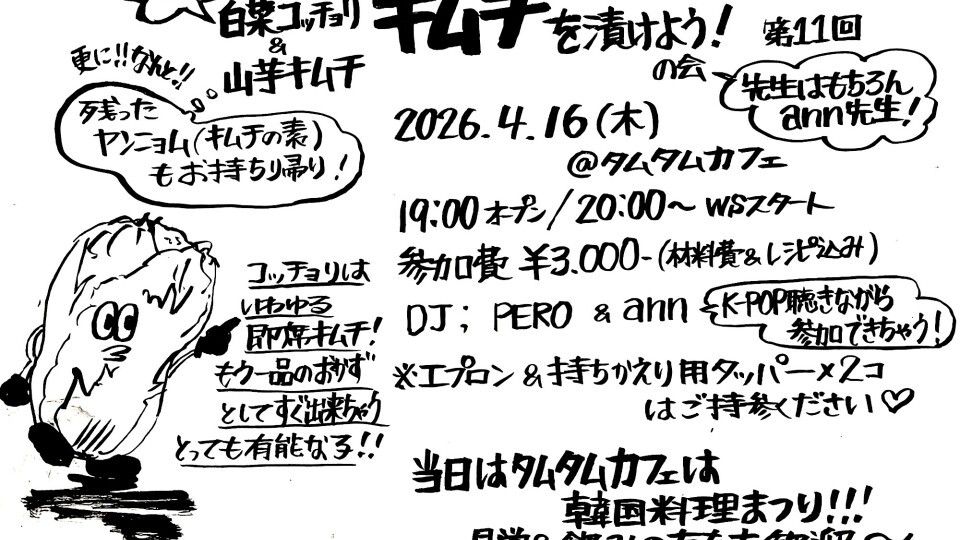 白菜コッチョリ
&
山芋キムチ
キムチを漬けよう!
の会
第11回
先生はもちろん
ann先生!
更に!!なんと!!
残った
ヤンニョム(キムチの素)
もお持ち帰り!
2026.4.16(木)
@タムタムカフェ
19:00オープン/20:00~WSスタート
参加費¥3.000-(材料費&レシピ込み)
DJ; PERO & ann
K-POP聴きながら
参加できちゃう!
※エプロン&持ちかえり用タッパー×2コ
はご持参ください♡
コッチョリは
いわゆる
即席キムチ!
もう一品のおかず
としてすぐ出来ちゃう
とっても有能な子!!
当日はタムタムカフェは
韓国料理まつり!!!